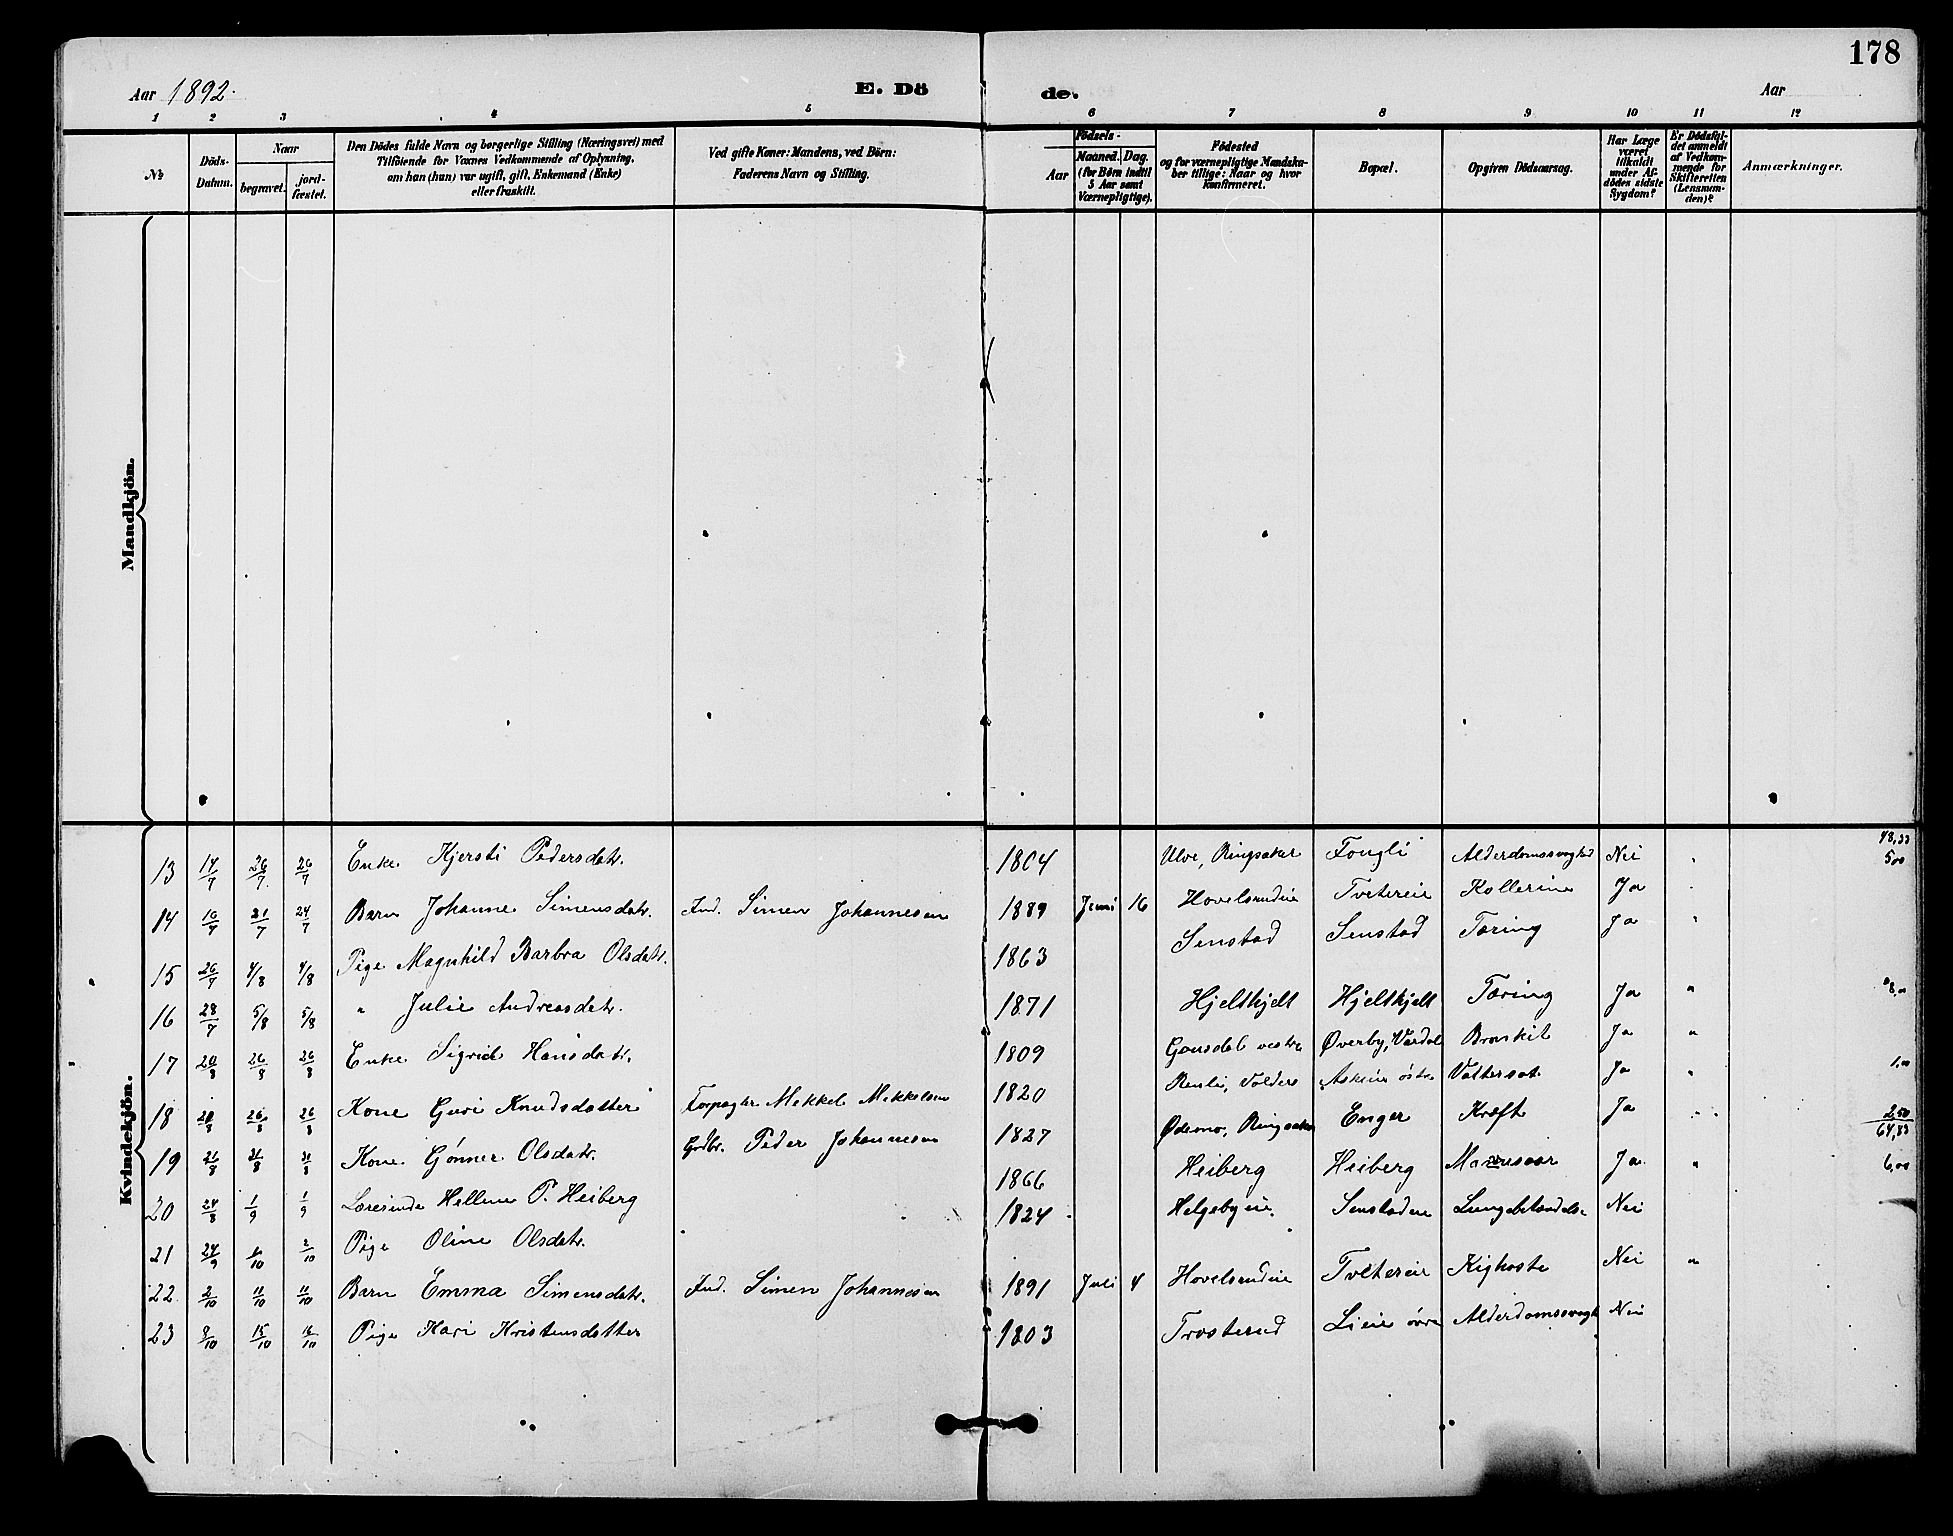 178
Aar 1892. E. Dö de. Aar
1 2 3 4 5 6 7 8 9 10 11 12
№
Döds-Datum.
Naar
begravet.
jord-fæstet.
Den Dödes fulde Navn og borgerlige Stilling (Næringsvei) med
Tilföiende for Voxnes Vedkommende af Oplysning,
om han (hun) var ugift, gift, Enkemand (Enke)
eller fraskilt.
Ved gifte Koner: Mandens, ved Börn:
Faderens Navn og Stilling.
Födsels-
Aar
Maaned. Dag.
(for Börn indtil
5 Aar samt
Værnepligtige).
Födested
og for værnepligtige Mandska-
ber tillige: Naar og hvor
konfirmeret.
Bopæl.
Opgiven Dödsaarsag.
Har Læge
været
tilkaldt
under Af-
dödes sidste
Sygdom?
Er Dödsfal-
det anmeldt
af Vedkom-
mende for
Skifteretten
(Lensman-
den)?
Anmærkninger.
Mandkjön.
Kvindekjön.
13 17/7 26/7 26/7 Enke Kjersti Pedersdatr. 1804 Ulve, Ringsaker Fougli Alderdomssvaghed Nei 5,00
14 16/7 21/7 24/7 Barn Johanne Simensdatr. Ind. Simen Johannesen 1889 Juni 16 Hovelsrudeie Tvetereie Kollerine Ja
15 26/7 4/8 4/8 Pige Magnhild Barbra Olsdatr. 1863 Senstad Senstad Tæring Ja "
16 28/7 5/8 5/8 " Julie Andreasdatr. 1871 Hjeltkjelt Hjeltkjelt Tæring Ja "
17 20/8 26/8 26/8 Enke Sigrid Hansdatr. 1809 Gausdal vestre Øverby, Vardal Bronkit Ja "
18 20/8 26/8 26/8 Kone Guri Knudsdatter Forpagter Mekkel Mekkelsen 1820 Renli, Valders Askeim østre Vattersot Ja " 1,00
19 21/8 31/8 31/8 Kone Gønner Olsdatr. Grdbr. Peder Johannesen 1827 Ødemo, Ringsaker Enger Kræft Ja " 2,50
64,83
20 24/8 1/9 1/9 Lærerinde Hellene P. Heiberg 1866 Heiberg Heiberg Ja " 6,00
21 24/9 2/10 Pige Oline Olsdatr. 1824 Helgebyeie. Senstadeie Lungebetændelse Nei
22 2/10 11/10 11/10 Barn Emma Simensdatr. Ind. Simen Johannesen 1891 Juli 4 Hovelsrudeie Tvetereie Kighoste Nei "
23 9/10 15/10 16/10 Pige Kari Kristensdatter 1803 Trosterud Lieie øvre Alderdomssvagh Nei